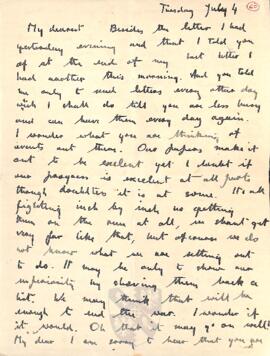 Tuesday July 4
My dearest Besides the letter I had
yesterday evening and that I told you
of at the end of my last letter I
had another this morning. And you told
me only to send letters every other day
wh I shall do till you are less busy
and can have them every day again.
I wonder what you are thinking of
events out there. Our papers make it
out to be excellent yet I doubt if
our progress is excellent at all points
though doubtless it is at some. It's all
fighting inch by inch no getting
them on the run at all, we shant get
very far like that, but of course we do
not know what we are setting out
to do. It may be only to show our
superiority by shoving them back a
bit. We may think that will be
enough to end the war. I wonder if
it would. Oh that it may go on well!
My dear I am sorry to hear that you are